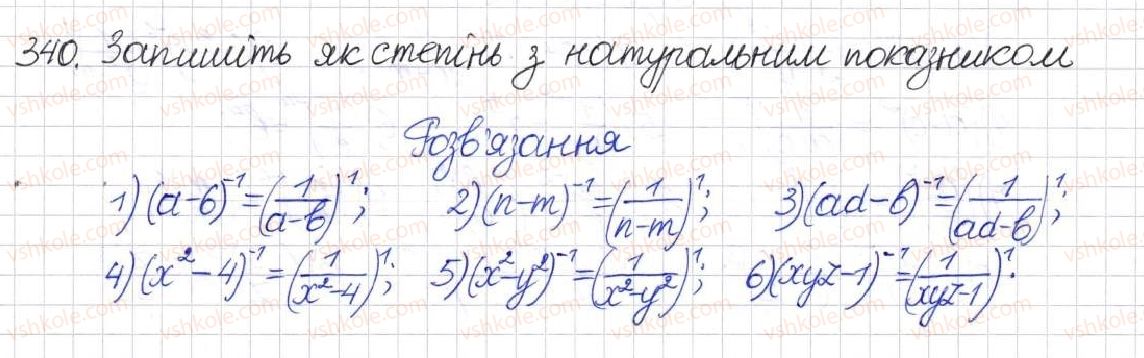 340. Запишіть як степінь з натуральним показником
Розв'язання
1) (a-б)⁻¹ = (1/(a-b))¹; 2) (n-m)⁻¹ = (1/(n-m))¹; 3) (ad-b)⁻¹ = (1/(ad-b))¹;
4) (x²-4)⁻¹ = (1/(x²-4))¹; 5) (x²-y²)⁻¹ = (1/(x²-y²))¹; 6) (xyz-1)⁻¹ = (1/(xyz-1))¹.